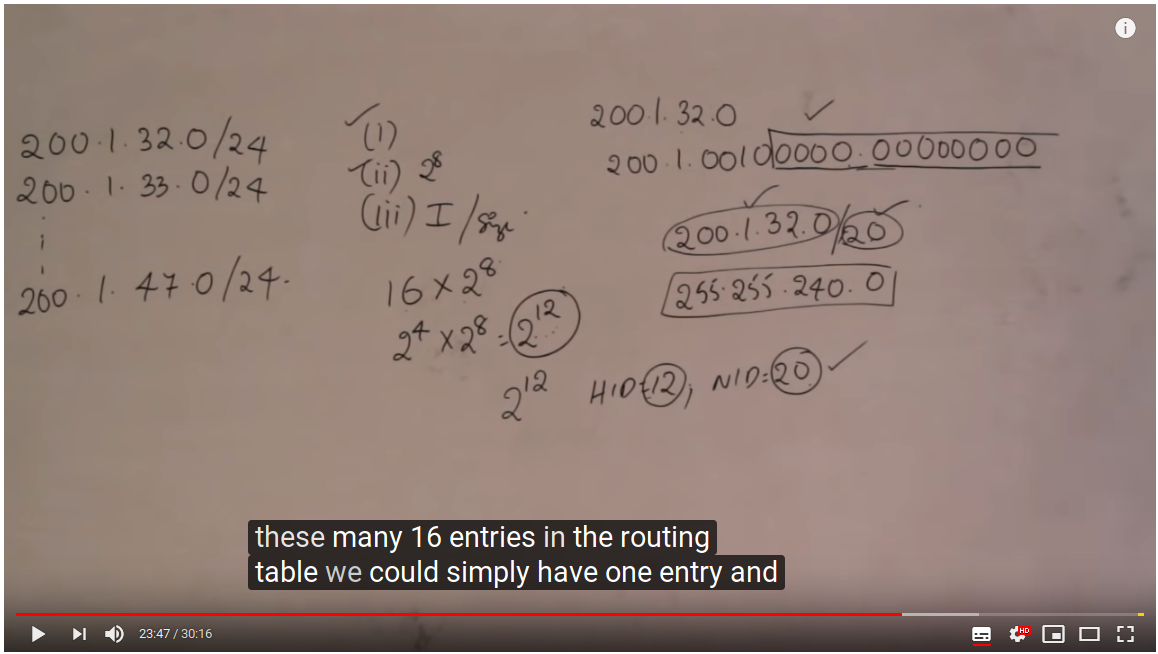 200.1.32.0/24
200.1.33.0/24
200.1.47.0/24.
(i)
(ii) 2⁸
(iii) I/Size
16 × 2⁸
2⁴ × 2⁸ = 2¹²
2¹² HID=12, NID=20
200.1.32.0
200.1.00100000.00000000
200.1.32.0/20
255.255.240.0
these many 16 entries in the routing
table we could simply have one entry and
23:47 / 30:16
HD
i